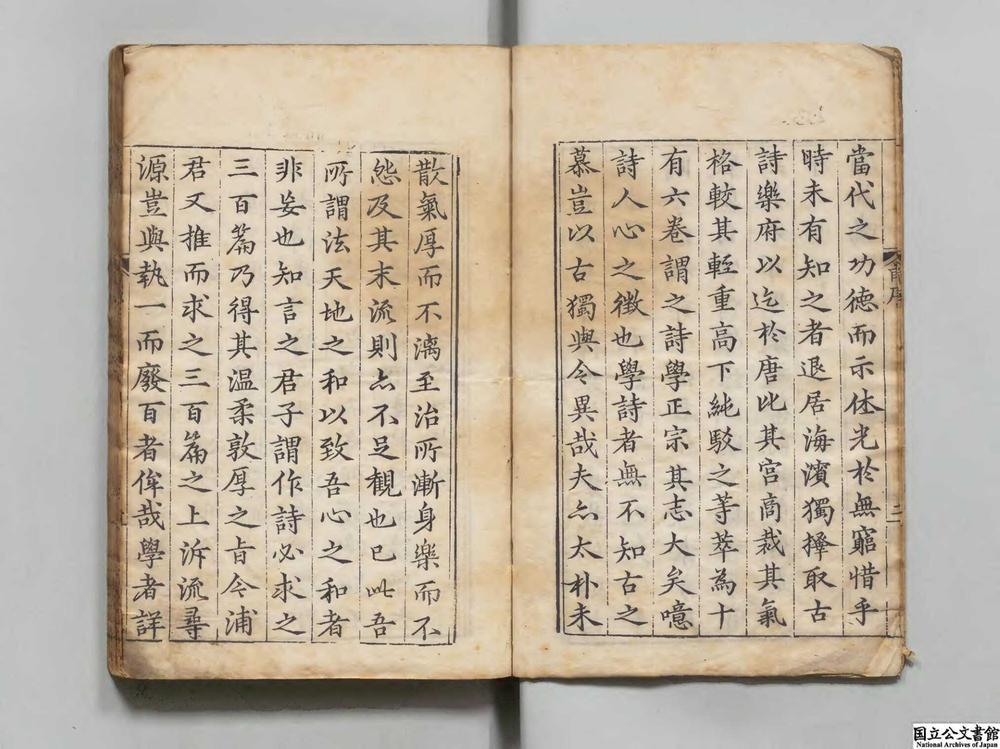 當代之功德而示休光於無窮惜乎
時未有知之者退居海濱獨擇取古
詩樂府以迄於唐比其宮商裁其氣
格較其輕重高下純駁之等萃為十
有六卷謂之詩學正宗其志大矣噫
詩人心之徵也學詩者無不知古之
慕豈以古獨與今異哉夫亦太朴未
散氣厚而不漓至治所漸身樂而不
怨及其末流則亦不足觀也已此吾
所謂法天地之和以致吾心之和者
非妄也知言之君子謂作詩必求之
三百篇乃得其溫柔敦厚之旨今浦
君又推而求之三百篇之上泝流尋
源豈與執一而廢百者侔哉學者詳
二
国立公文書館
National Archives of Japan